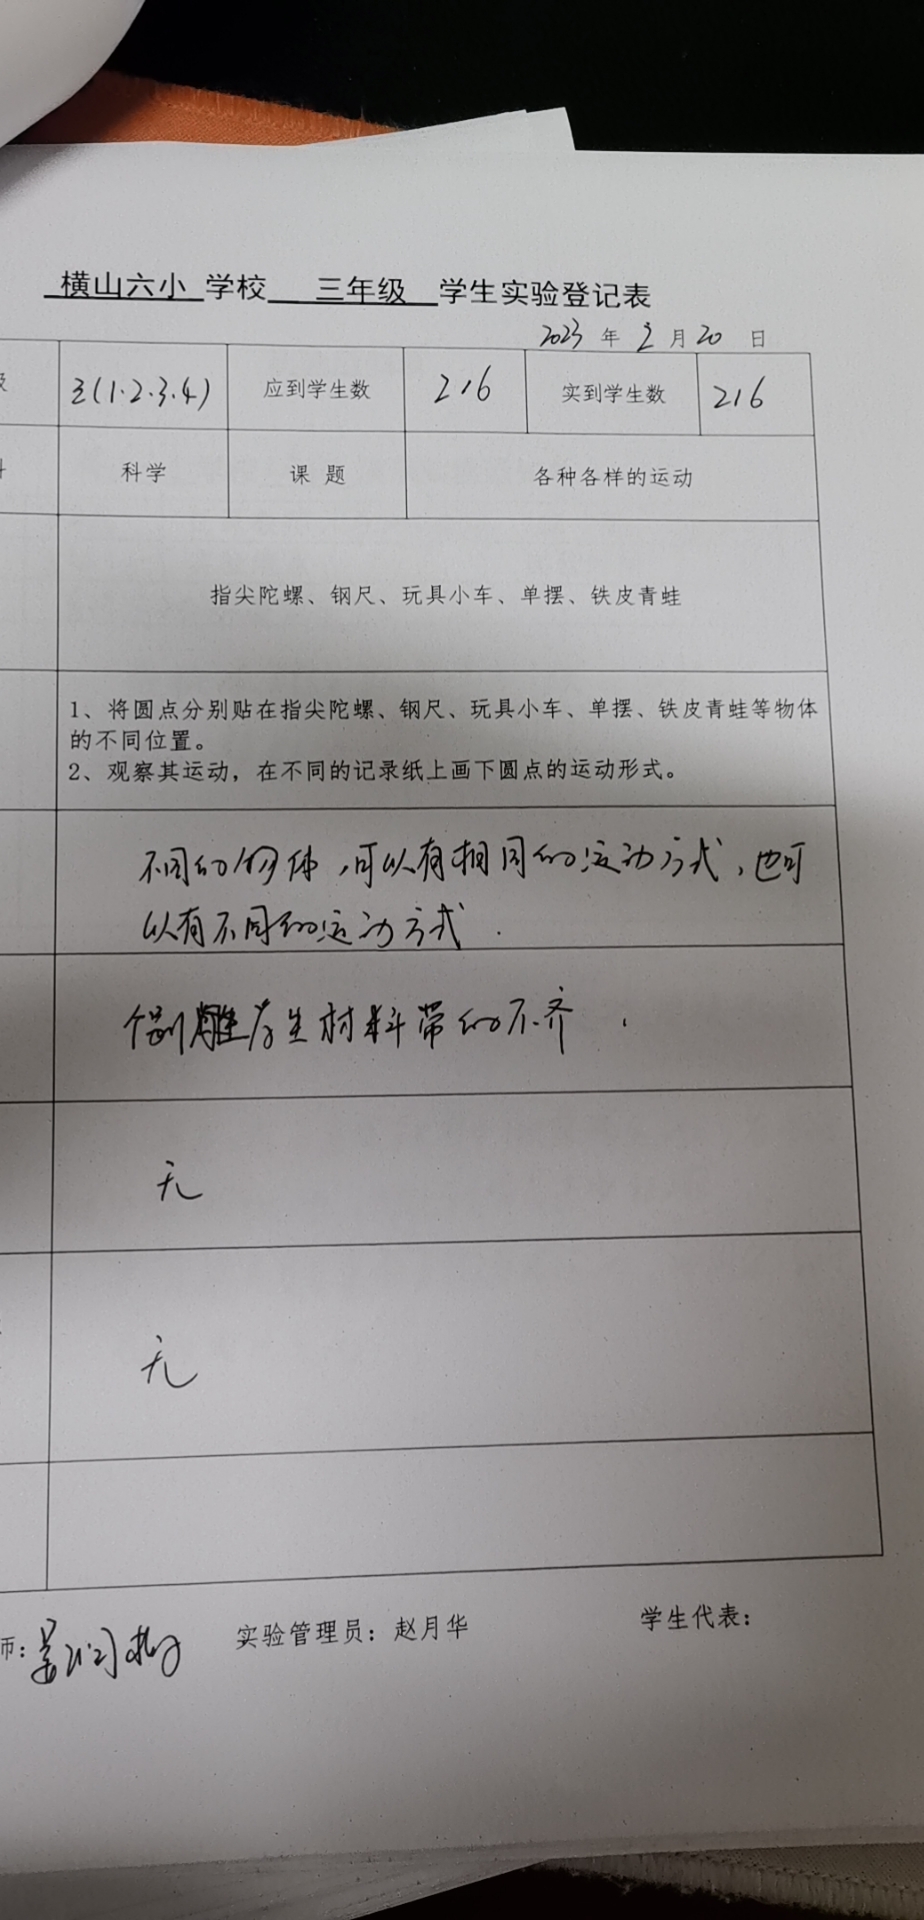 横山六小 学校 三年级 学生实验登记表
2023 年 2 月 20 日
级 三(1.2.3.4) 应到学生数 216 实到学生数 216
科学 课 题 各种各样的运动
指尖陀螺、钢尺、玩具小车、单摆、铁皮青蛙
1、将圆点分别贴在指尖陀螺、钢尺、玩具小车、单摆、铁皮青蛙等物体
的不同位置。
2、观察其运动，在不同的记录纸上画下圆点的运动形式。
不同的物体，可以有相同的运动方式，也可
以有不同的运动方式.
个别 学生材料带的不齐.
无
无
师: 实验管理员：赵月华 学生代表：